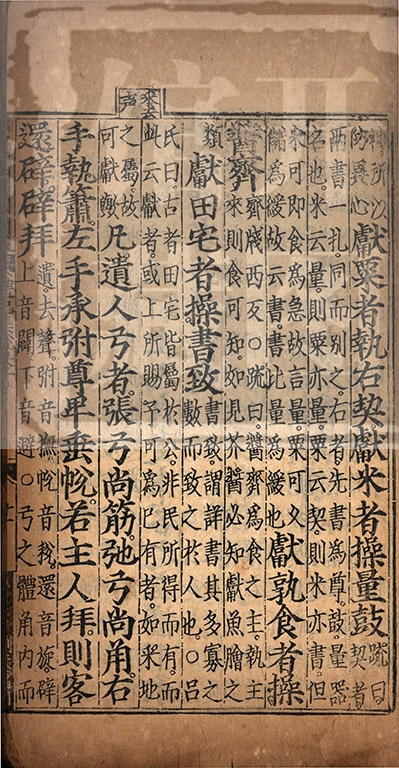 采去声
袂所以
防異心
獻粟者執右契獻米者操量鼓
疏曰
契者
兩書一扎同而別之右者先書為尊鼓量器
名也米云量則粟亦量粟云契則米亦書但
米可即食為急故言量粟可久
儲為緩故云書書比量為緩也
獻孰食者操
醬齊
齊牋西反○疏曰醬齊為食之主執主
來則食可知如見芥醬必知獻魚膾
類
獻田宅者操書致
書致謂詳書其多寡之
數而致之於人也○呂
氏曰古者田宅皆屬於公非民所得而有而
此云獻者或上所賜予可為己有者如采地
之屬故
可獻歟
凡遺人弓者張弓尚筋弛弓尚角右
手執簫左手承弣尊卑垂帨若主人拜則客
還辟辟拜
遺去聲弣音撫帨音稅還音旋辟
上音闢下音避○弓之體角內而